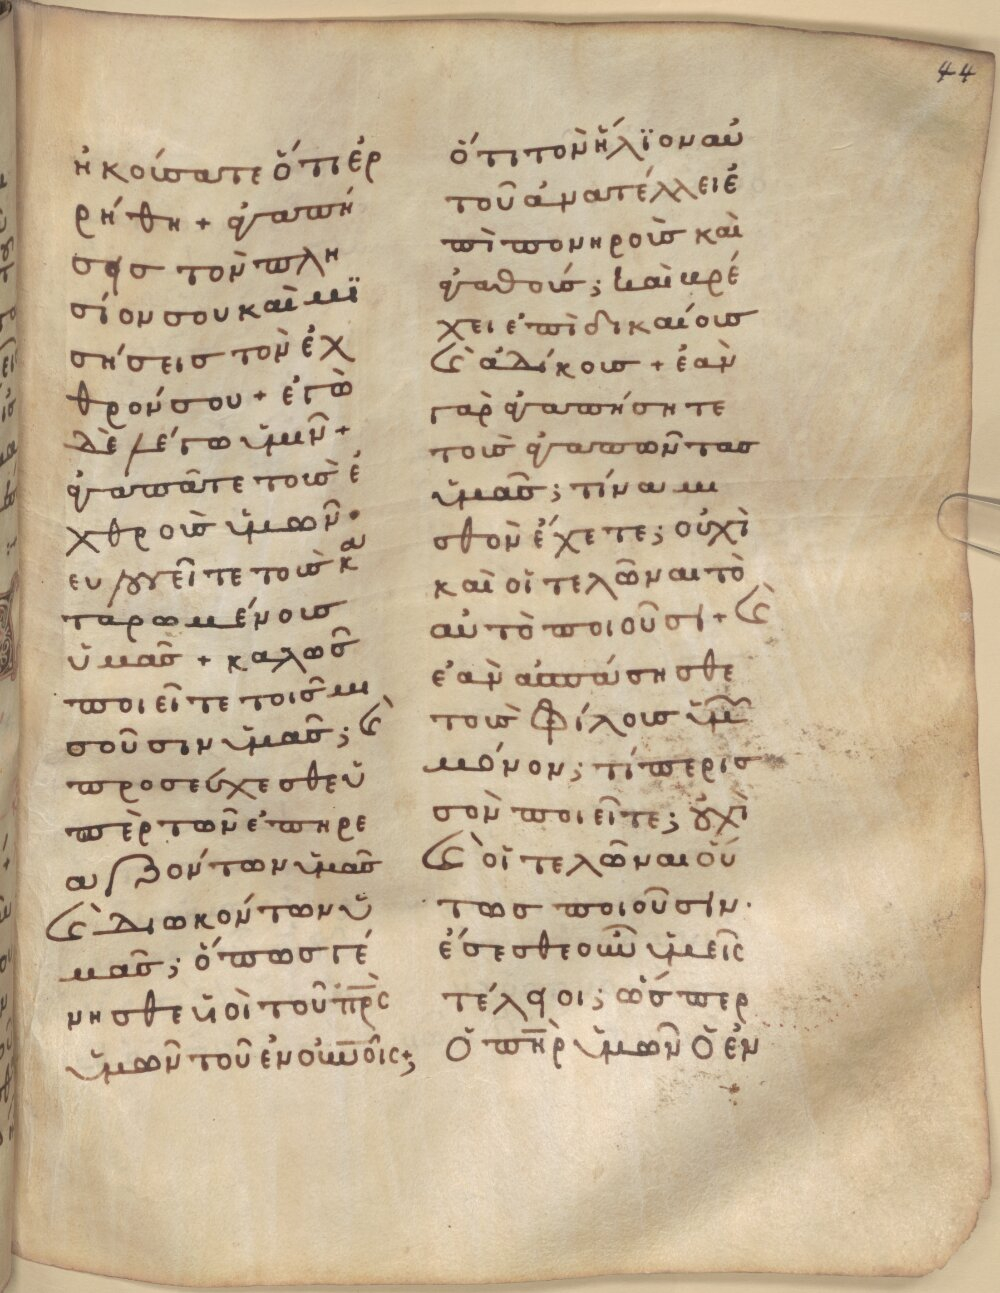 44
ἠκούσατε ὅτι ἐρ
ρήθη + ἀγαπή
σης τὸν πλη
σίον σου καὶ μϊ
σήσεις τὸν ἐχ
θρόν σου + ἐγὼ
δὲ λέγω ὑμῖν +
ἀγαπᾶτε τοὺς ἐ
χθροὺς ὑμῶν ·
ευλογεῖτε τοὺς κα
ταρωμένους
ὑμᾶς + καλῶς
ποιεῖτε τοῖς μι
σοῦσιν ὑμᾶς ; ϗ
προσεύχεσθε ὑ
πὲρ τῶν ἐπηρε
αζόντων ὑμᾶς
ϗ διωκόντων ὑ
μᾶς ; ὅπως γέ
νησθε υἱοὶ τοῦ π̅ρ̅ς
ὑμῶν τοῦ ἐν ου̅νοῖς + ;
ὅτι τὸν ἥλϊον αὐ
τοῦ ἀνατέλλει ἐ
πὶ πονηροὺς καὶ
ἀγαθούς ; καὶ βρέ
χει ἐπὶ δικαίους
ϗ ἀδίκους + ἐὰν
γὰρ ἀγαπήσητε
τοὺς ἀγαπῶντας
ὑμᾶς ; τίνα μι
σθὸν ἔχετε ; οὐχὶ
καὶ οἱ τελῶναι τὸ
αὐτὸ ποιοῦσι + ϗ
ἐὰν ἀσπάσησθε
τοὺς φίλους ὑμῶν
μόνον ; τί περισ
σὸν ποιεῖτε ; οὐχὶ
ϗ οἱ τελῶναι οὕ
τως ποιοῦσιν ·
ἔσεσθε οὖν ὑμεῖς
τέλειοι ; ὥσπερ
ὁ π̅η̅ρ ὑμῶν ὁ ἐν